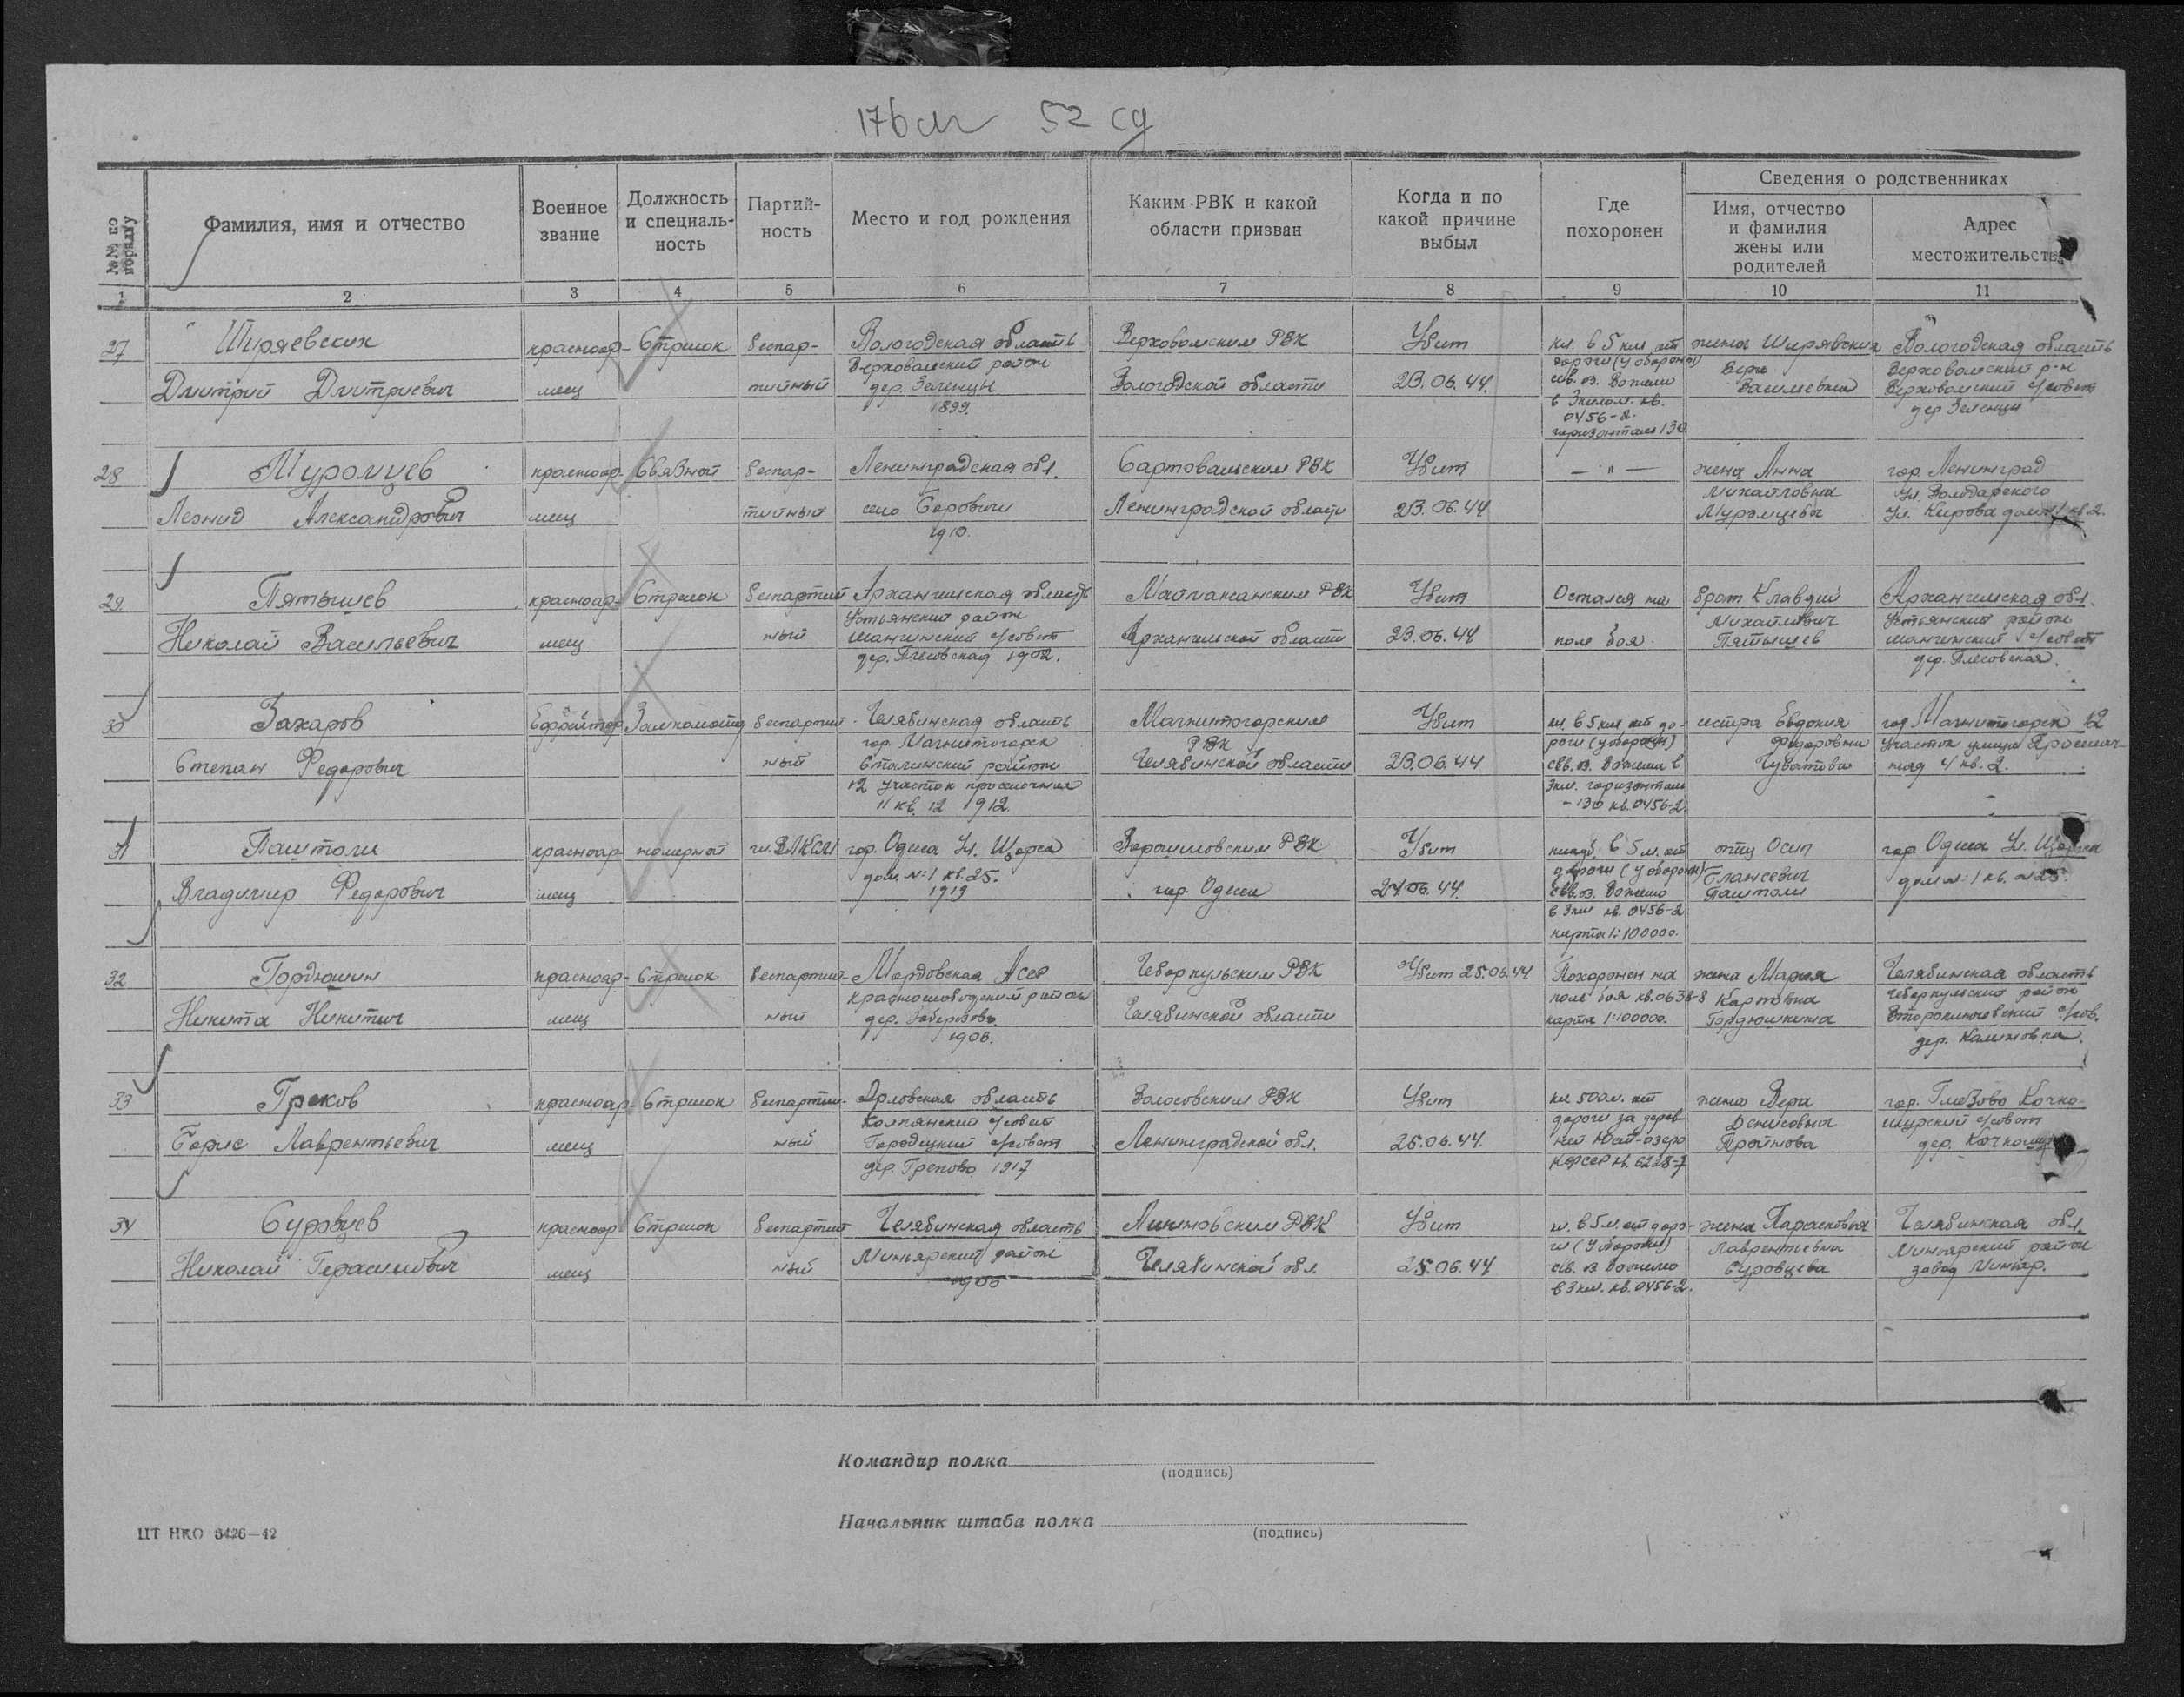 176 сп 52 сд
№№ по порядку
Фамилия, имя и отчество
Военное звание
Должность и специаль-ность
Партий-ность
Место и год рождения
Каким РВК и какой области призван
Когда и по какой причине выбыл
Где похоронен
Сведения о родственниках
Имя, отчество и фамилия жены или родителей
Адрес местожительства
1 2 3 4 5 6 7 8 9 10 11
27 Ширяевских красноар- Стрелок беспар- Вологодская область Верховским РВК Убит кл. в 5 км от жена Ширявских Вологодская область
Верховажский район дороги (у обороны) Вера Верховажский р-н
Дмитрий Дмитриевич меец тийный дер. Зеленцы Вологодской области 23.06.44. Васильевна Верховажский с/совет
1899. в 3 килом. кв. дер Зеленцы
0456-2.
горизонталь 130
28 Муромцев красноар- Связной беспар- Ленинградская обл. РВК Убит — " — жена Анна гор. Ленинград
Михайловна ул. Володарского
Леонид Александрович меец тийный село Боровичи Ленинградской области 23.06.44 Муромцева ул. Кирова дом 1 кв 2.
1910.
29 Пятышев красноар- Стрелок беспартий Архангельская область РВК Убит Остался на брат Клавдий Архангельская обл.
Устьянский район Михайлович Устьянский район
Николай Васильевич меец ный с/совет Архангельской области 23.06.44 поле боя Пятышев с/совет
дер. Плесовская 1902. дер. Плесовская.
30 Захаров Ефрейтор беспартий- Челябинская область Магнитогорским Убит кл. в 5 км от до- сестра Евдокия гор Магнитогорск 12
гор. Магнитогорск РВК роги (у обороны) Федоровна участок улица
Степан Федорович ный Сталинский район Челябинской области 23.06.44 4 кв. 2.
12 участок 3 км. горизонталь
11 кв. 12 1912. - 130 кв. 0456-2.
31 Паштоли красноар- номерной чл. ВЛКСМ гор. Одесса Ул. Щорса Ворошиловским РВК Убит кладб. в 5 м. от отец Осип гор Одесса Ул. Щорса
дом №1 кв. 25. дороги (у обороны)
Владимир Федорович меец 1919 гор. Одесса 24.06.44. Паштоли дом №1 кв. №25
в 3 км кв. 0456-2
карта 1:100000.
32 Гордюшин красноар- Стрелок беспартий- Мордовская Асср Чебаркульским РВК Убит 25.06.44 Похоронен на жена Мария Челябинская область
Краснослободский район поле боя кв. 0638-8 Карповна Чебаркульский район
Никита Никитич меец ный дер. Челябинской области карта 1:100000. Гордюшкина с/сов.
1906. дер. Калиновка.
33 Греков красноар- Стрелок беспартий- Орловская область Волосовским РВК Убит кл 500 м. от жена Вера гор. Глазово Кочко-
Колпянский с/совет дороги за дерев- Денисовна шурский с/совет
Борис Лаврентьевич меец ный Городецкий с/совет Ленинградской обл. 25.06.44. ней дер.
дер. Греково 1917 КФССР кв. 6228-7
34 Суровцев красноар Стрелок беспартий Челябинская область РВК Убит кл. в 5 м. от доро- жена Парасковья Челябинская обл.
Миньярский район ги (у обороны) Лаврентьевна Миньярский район
Николай Герасимович меец ный 1905 Челябинской обл. 25.06.44 Суровцева завод Миньяр.
в 3 км. кв. 0456-2.
Командир полка
(подпись)
Начальник штаба полка
(подпись)
ЦТ НКО 3426—42